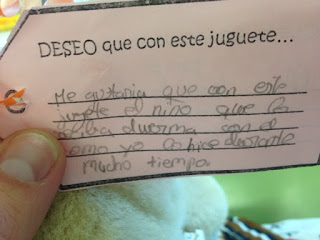 DESEO que con este juguete...
Me gustaria que con este
juguete el niño que lo
reciba duerma con el
como yo lo hice durante
mucho tiempo.